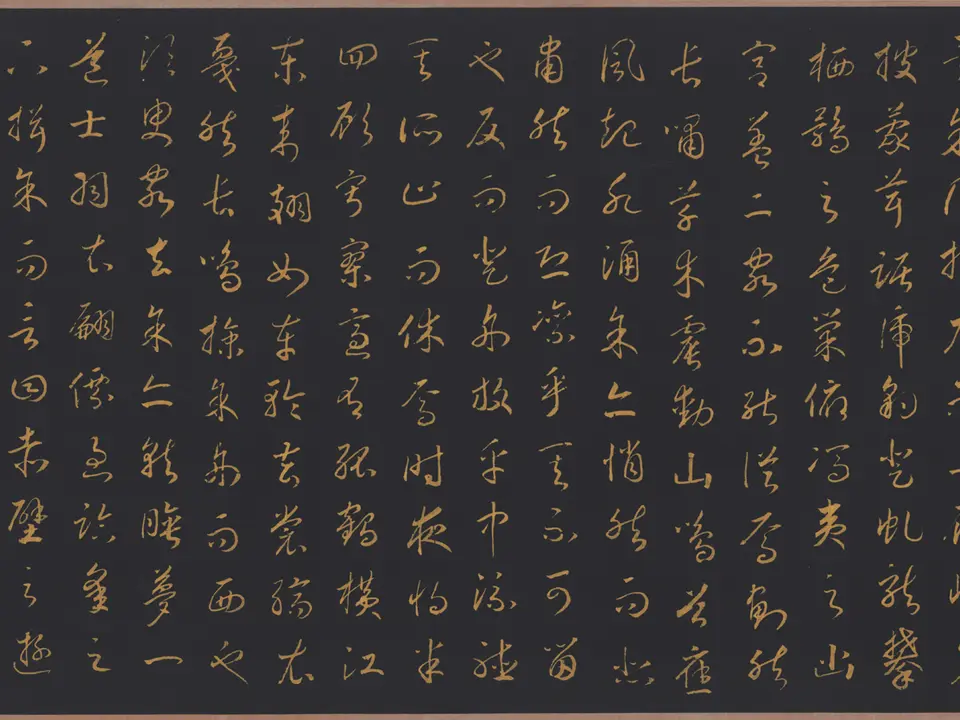 披蒙茸踞虎豹登虬龍攀
栖鶻之危巢俯馮夷之幽
宮蓋二客不能從焉劃然
長嘯草木震動山鳴谷應
風起水涌余亦悄然而悲
肅然而恐凜乎其不可留
也反而登舟放乎中流聽
其所止而休焉時夜將半
四顧寂寥適有孤鶴橫江
東來翅如車輪玄裳縞衣
戛然長鳴掠余舟而西也
須臾客去余亦就睡夢一
道士羽衣翩僊過臨皋之
下揖余而言曰赤壁之遊